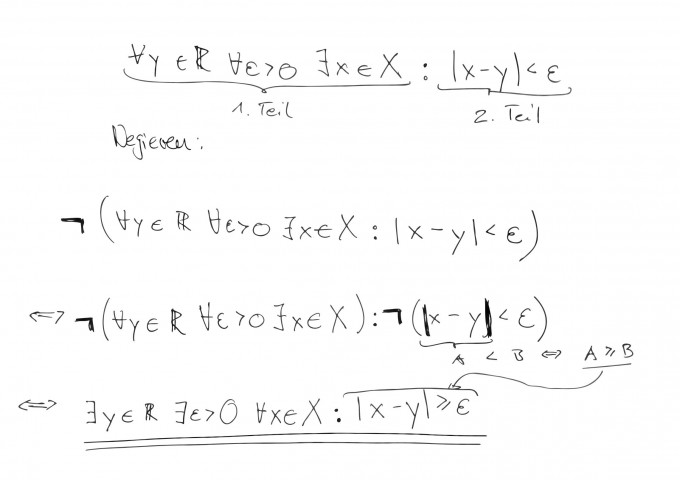 ∀y ∈ ℝ ∀ε>0 ∃x∈X : |x-y|<ε
1. Teil 2. Teil
Negieren:
¬(∀y∈ℝ ∀ε>0 ∃x∈X : |x-y|<ε)
<=> ¬(∀y∈ℝ ∀ε>0 ∃x∈X):¬(|x-y|<ε)
A < B <=> A≥B
<=> ∃y∈ℝ ∃ε>0 ∀x∈X : |x-y|≥ε